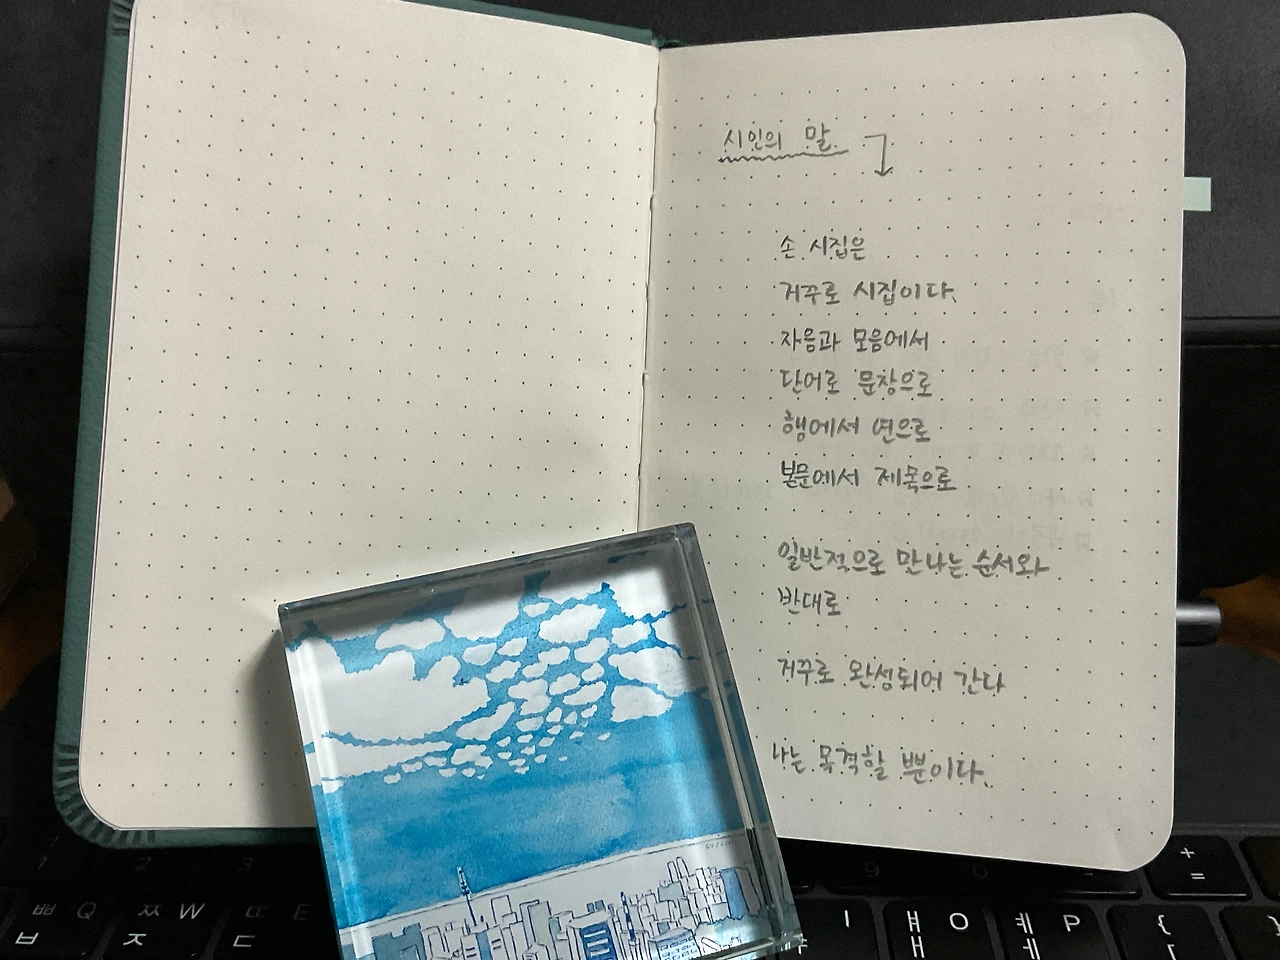 시인의 말
손 시집은
거꾸로 시집이다.
자음과 모음에서
단어로 문장으로
행에서 연으로
본문에서 제목으로
일반적으로 만나는 순서와
반대로
거꾸로 완성되어 간다
나는 목격할 뿐이다.
1 2 3 9 0 - + =
ㅃ Q ㅉ W ㄸ E I ㅒ O ㅖ P {
ㅂ ㅈ ㄷ ㅐ ㅔ [